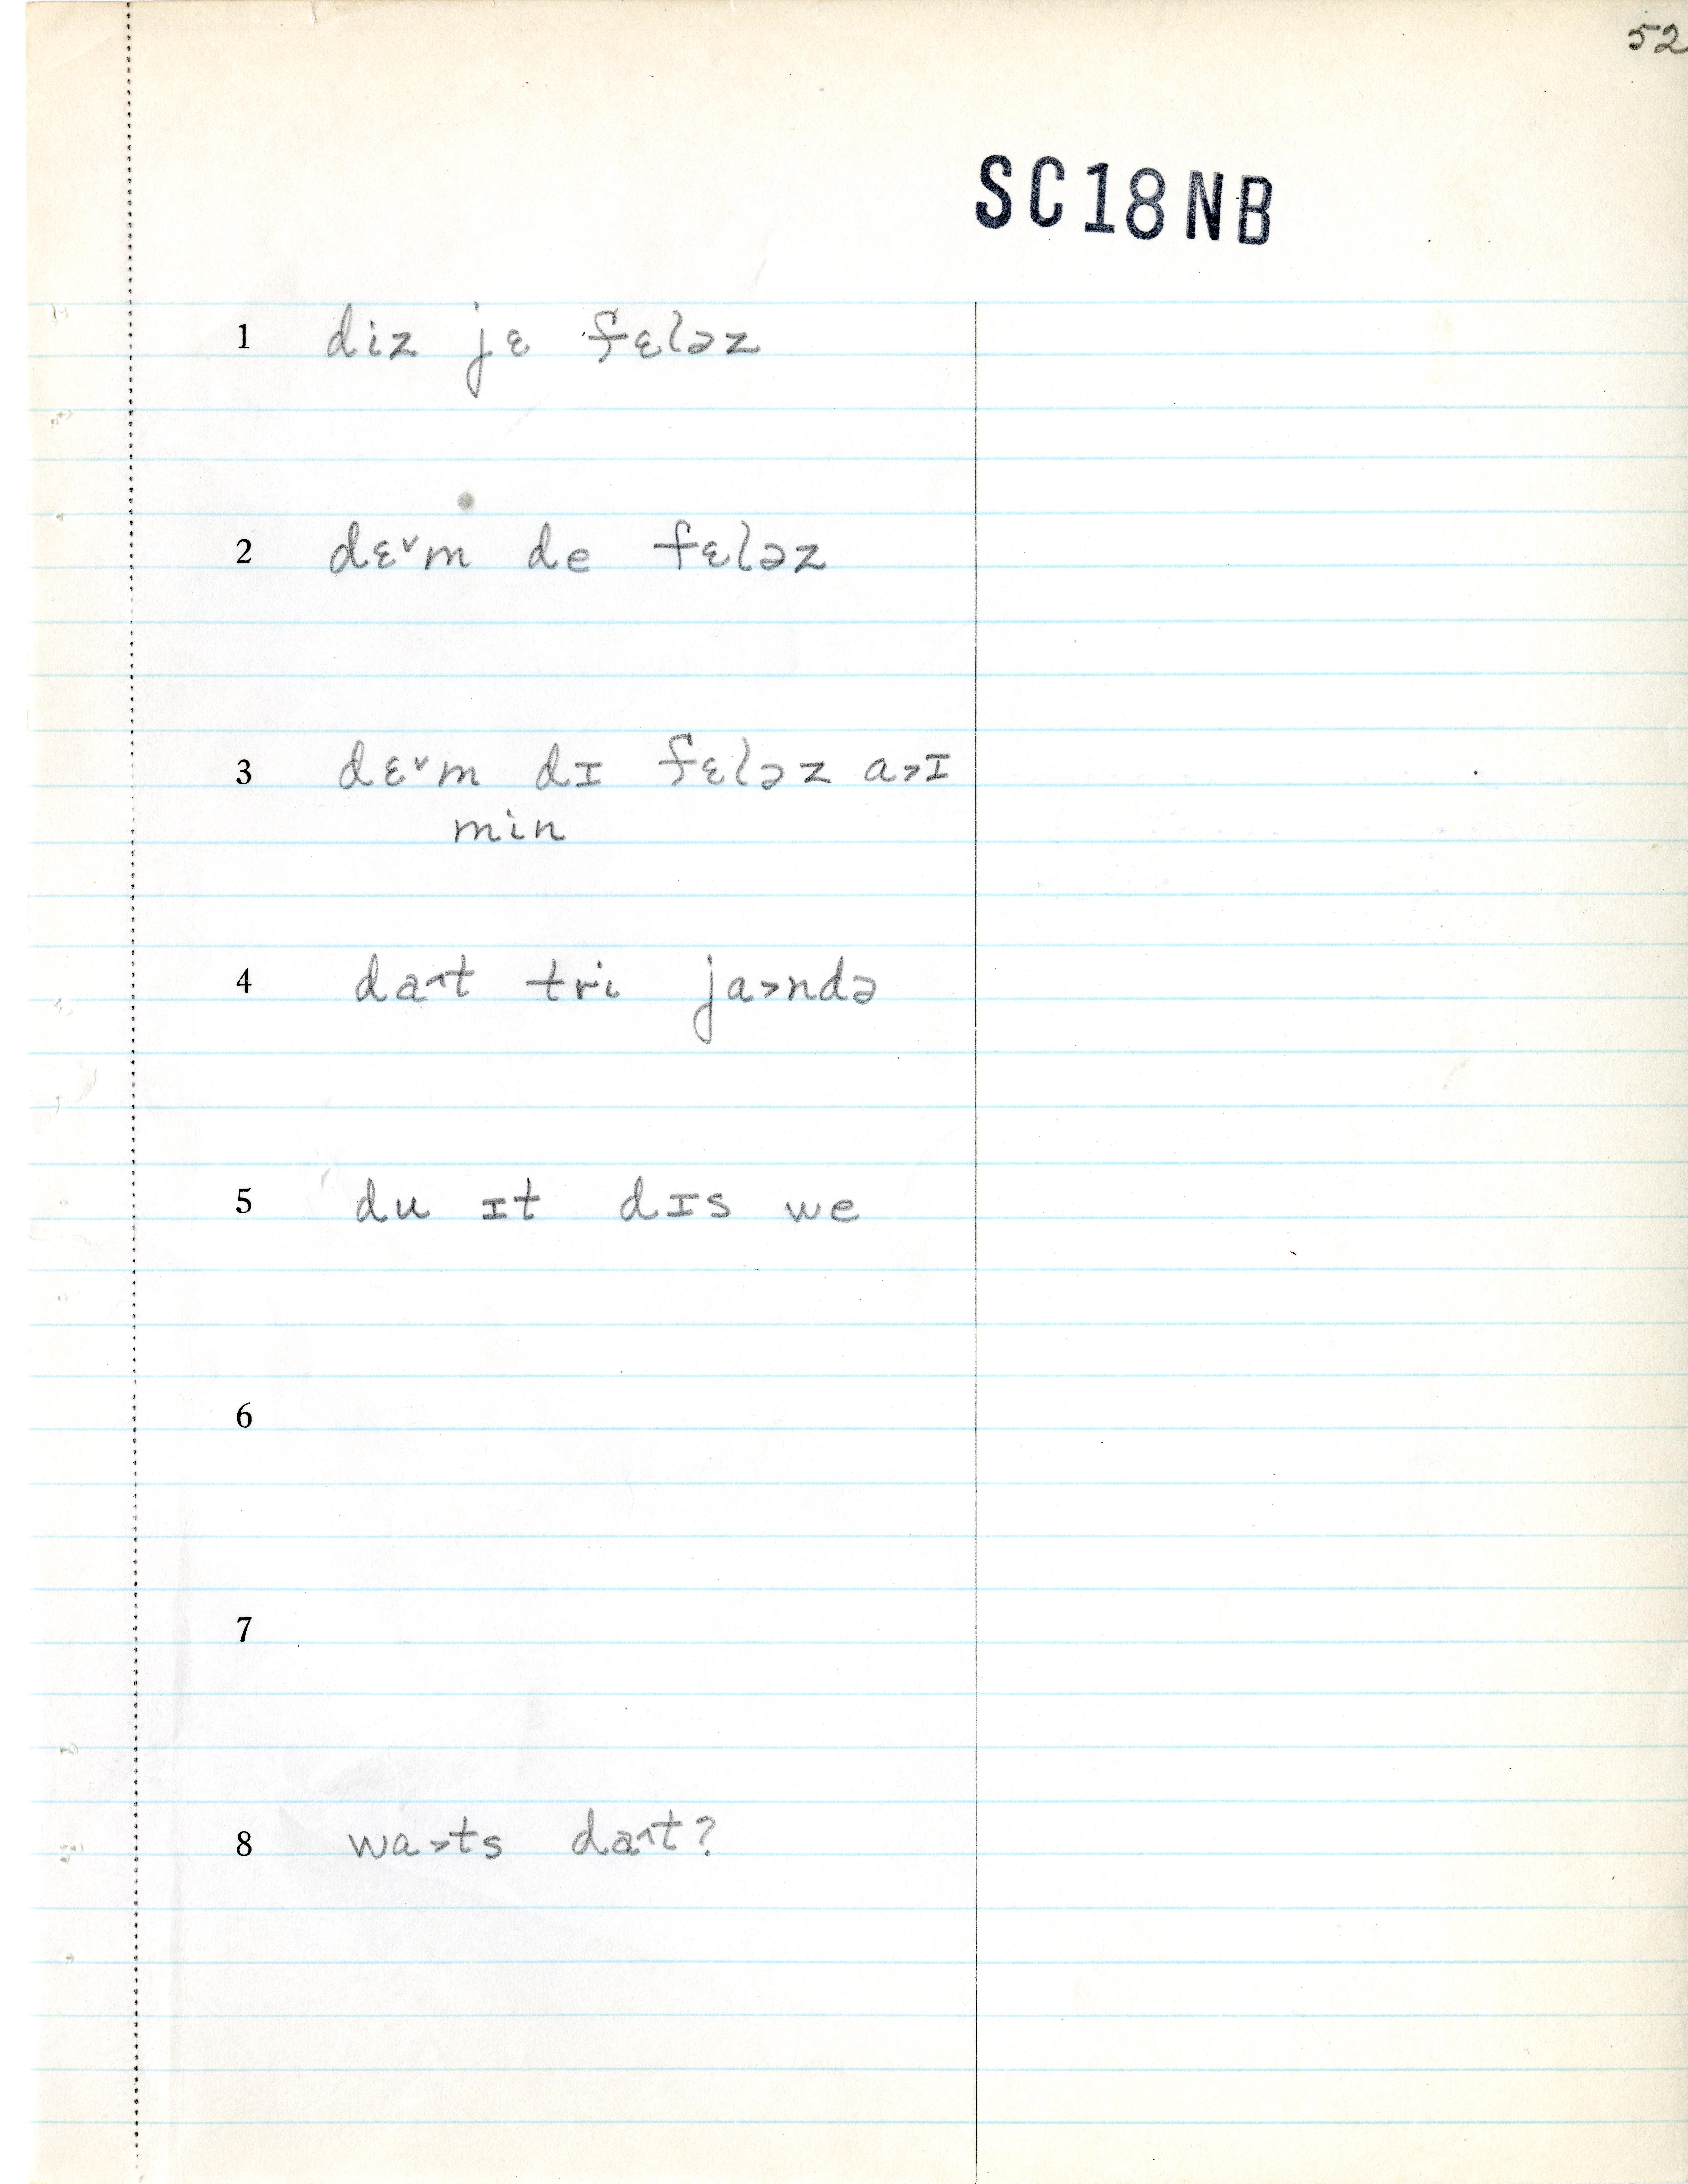 52
SC18NB
1 diz jɛ fɛləz
2 dɛ˅m de fɛləz
3 dɛ˅m dɪ fɛləz a˃ɪ
min
4 da˄t tri ja˃ndə
5 du ɪt dɪs we
6
7
8 wa˃ts da˄t?